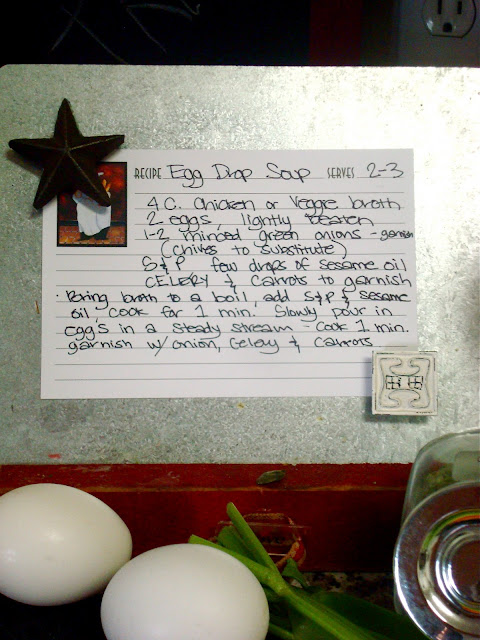 RECIPE Egg Drop Soup SERVES 2-3
4 C. Chicken or Veggie broth
2 eggs, lightly beaten
1-2 minced green onions - garnish
(chives to substitute)
S & P few drops of sesame oil
CELERY & Carrots to garnish
· Bring broth to a boil, add S&P & sesame
oil, cook for 1 min. Slowly pour in
egg's in a steady stream - cook 1 min.
garnish w/ onion, Celery & Carrots